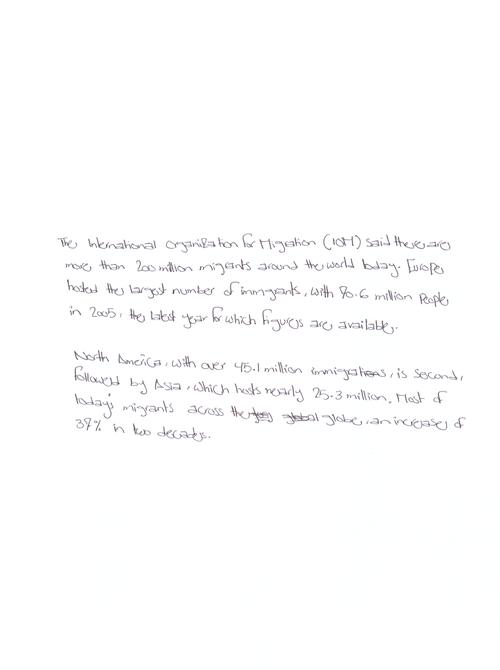 The International Organization for Migration (IOM) said there are
more than 200 million migrants around the world today. Europe
hosted the largest number of immigrants, with 70.6 million People
in 2005, the latest year for which figures are available.
North America, with over 45.1 million immigrations, is second,
followed by Asia, which hosts nearly 25.3 million. Most of
today's migrants across the global globe, an increase of
37% in two decades.